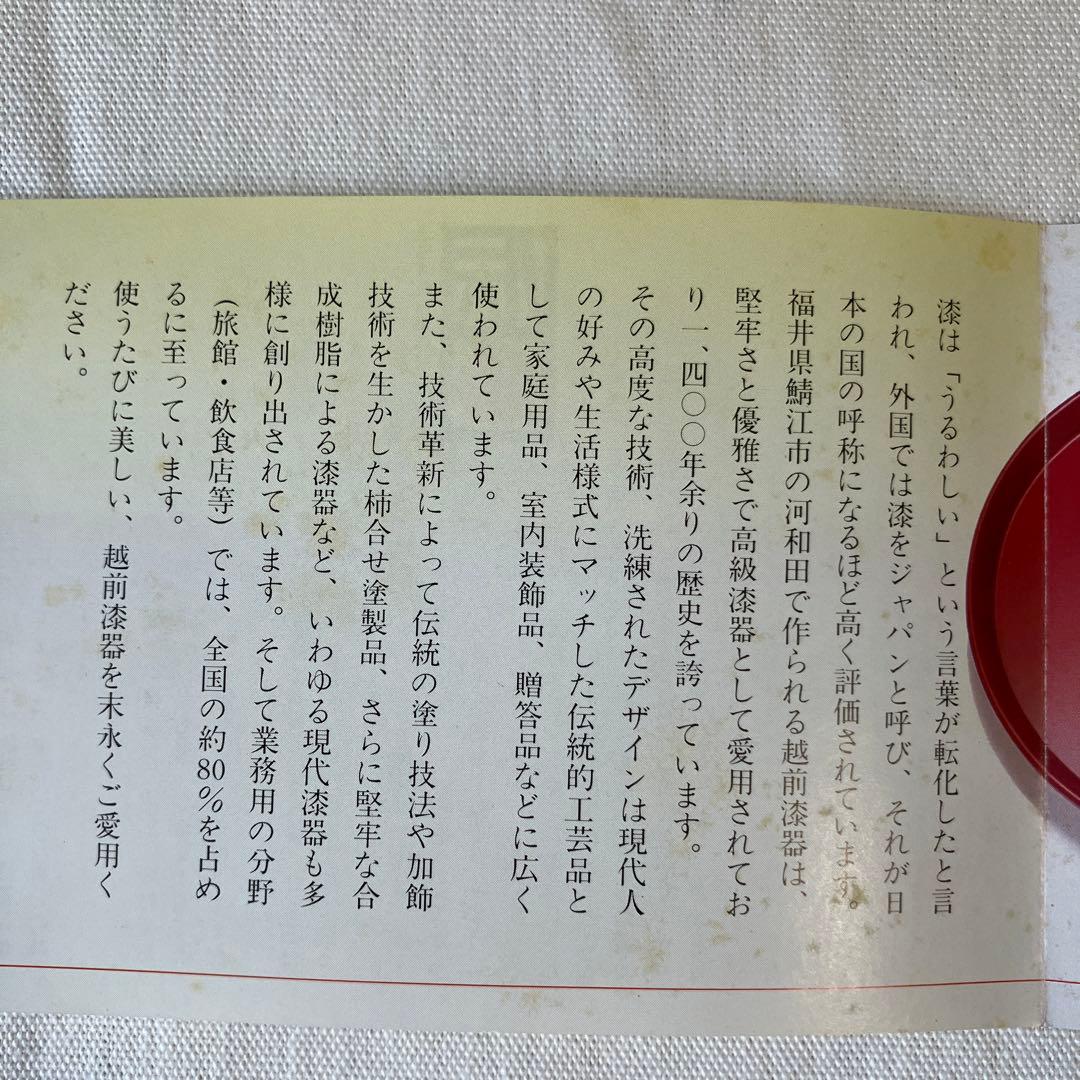 漆は「うるわしい」という言葉が転化したと言
われ、外国では漆をジャパンと呼び、それが日
本の国の呼称になるほど高く評価されています。
福井県鯖江市の河和田で作られる越前漆器は、
堅牢さと優雅さで高級漆器として愛用されてお
り一、四〇〇年余りの歴史を誇っています。
その高度な技術、洗練されたデザインは現代人
の好みや生活様式にマッチした伝統的工芸品と
して家庭用品、室内装飾品、贈答品などに広く
使われています。
また、技術革新によって伝統の塗り技法や加飾
技術を生かした柿合せ塗製品、さらに堅牢な合
成樹脂による漆器など、いわゆる現代漆器も多
様に創り出されています。そして業務用の分野
(旅館・飲食店等)では、全国の約80%を占め
るに至っています。
使うたびに美しい、越前漆器を末永くご愛用く
ださい。